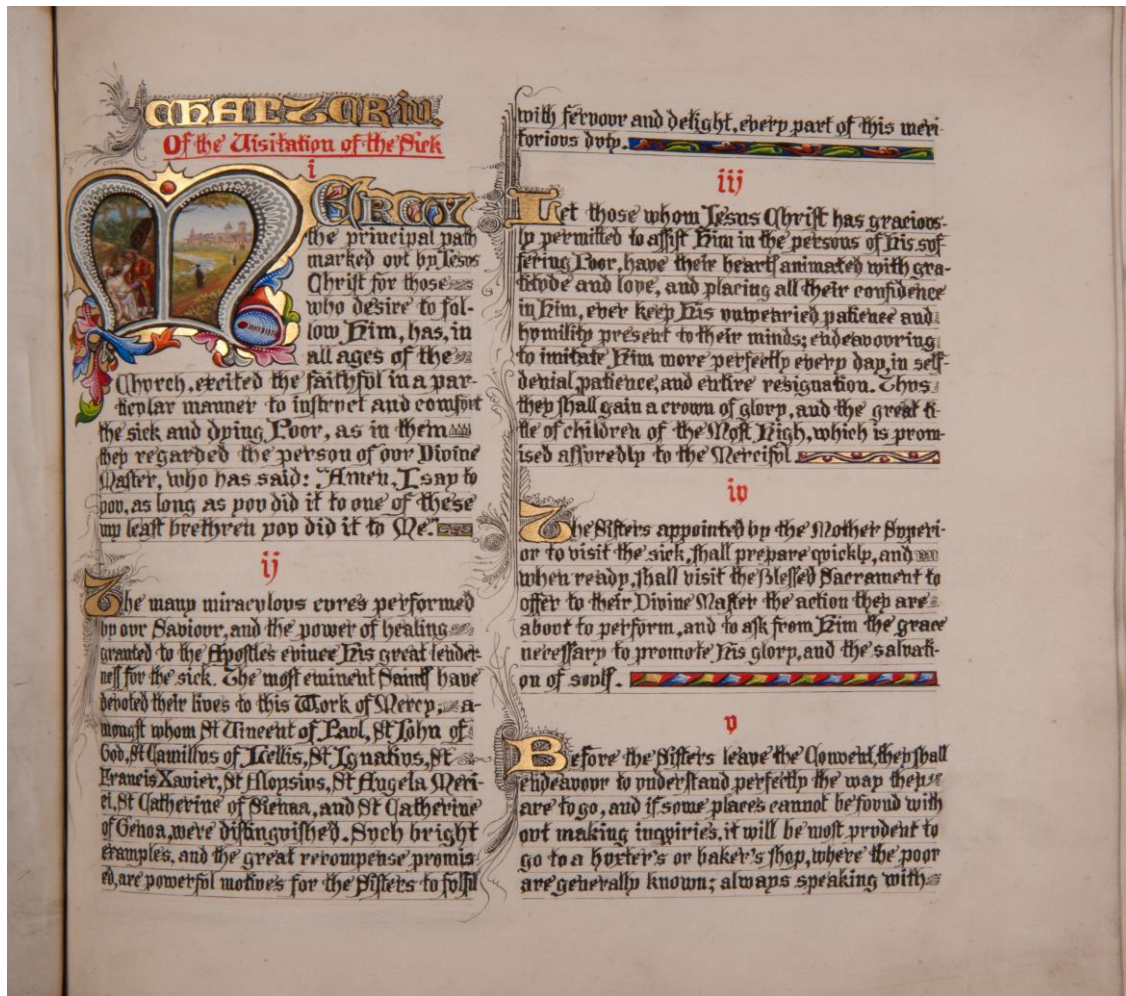 CHAPTER iv.
Of the Visitation of the Sick
i
MERCY
the principal path
marked out by Jesus
Christ for those
who desire to fol-
low Him, has, in
all ages of the
Church, excited the faithful in a par-
ticular manner to instruct and comfort
the sick and dying Poor, as in them
they regarded the person of our Divine
Master, who has said: "Amen, I say to
you, as long as you did it to one of these
my least brethren you did it to Me."
ij
The many miraculous cures performed
by our Saviour, and the power of healing
granted to the Apostles evince His great tender-
ness for the sick. The most eminent Saints have
devoted their lives to this Work of Mercy; a-
mongst whom St Vincent of Paul, St John of
God, St Camillus of Lellis, St Ignatius, St
Francis Xavier, St Aloysius, St Angela Meri-
ci, St Catherine of Sienna, and St Catherine
of Genoa, were distinguished. Such bright
examples, and the great recompense promis-
ed, are powerful motives for the Sisters to fulfil
with fervour and delight, every part of this meri-
torious duty.
iij
Let those whom Jesus Christ has gracious-
ly permitted to assist Him in the persons of His suf-
fering Poor, have their hearts animated with gra-
titude and love, and placing all their confidence
in Him, ever keep His unwearied patience and
humility present to their minds; endeavouring
to imitate Him more perfectly every day, in self-
denial, patience, and entire resignation. Thus
they shall gain a crown of glory, and the great ti-
tle of children of the Most High, which is prom-
ised assuredly to the Merciful.
iv
The Sisters appointed by the Mother Superi-
or to visit the sick, shall prepare quickly, and
when ready, shall visit the Blessed Sacrament to
offer to their Divine Master the action they are
about to perform, and to ask from Him the grace
necessary to promote His glory, and the salvati-
on of souls.
v
Before the Sisters leave the Convent, they shall
endeavour to understand perfectly the way they
are to go, and if some places cannot be found with
out making inquiries, it will be most prudent to
go to a huxter's or baker's shop, where the poor
are generally known; always speaking with